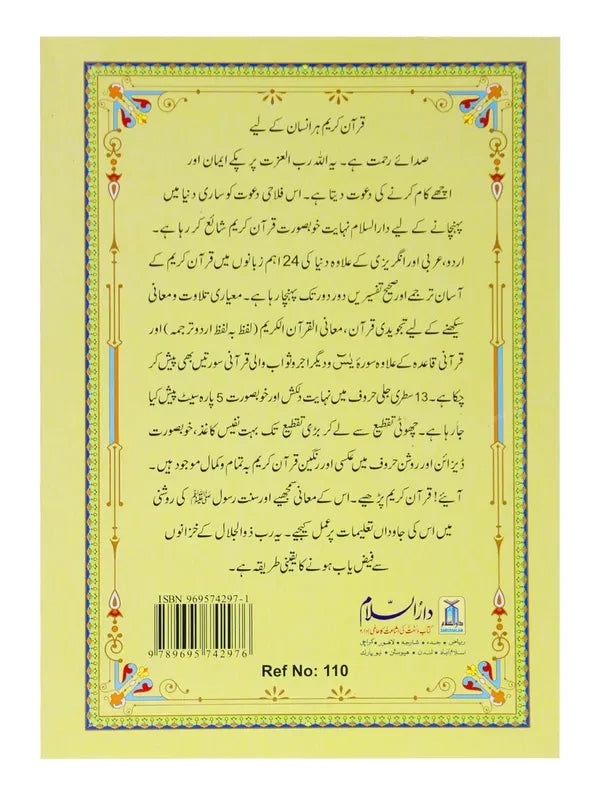 قرآن کریم ہر انسان کے لیے
صدائے رحمت ہے۔ یہ اللہ رب العزت پر پکے ایمان اور
اچھے کام کرنے کی دعوت دیتا ہے۔ اس فلاحی دعوت کو ساری دنیا میں
پہنچانے کے لیے دارالسلام نہایت خوبصورت قرآن کریم شائع کر رہا ہے۔
اردو، عربی اور انگریزی کے علاوہ دنیا کی 24 اہم زبانوں میں قرآن کریم کے
آسان ترجمے اور صحیح تفسیریں دور دور تک پہنچا رہا ہے۔ معیاری تلاوت و معانی
سیکھنے کے لیے تجویدی قرآن، معانی القرآن الکریم (لفظ بہ لفظ اردو ترجمہ) اور
قرآنی قاعدہ کے علاوہ سورۂ یٰسٓ و دیگر اجر و ثواب والی قرآنی سورتیں بھی پیش کر
چکا ہے۔ 13 سطری جلی حروف میں نہایت دلکش اور خوبصورت 5 پارہ سیٹ پیش کیا
جا رہا ہے۔ چھوٹی تقطیع سے لے کر بڑی تقطیع تک بہت نفیس کاغذ، خوبصورت
ڈیزائن اور روشن حروف میں عکسی اور رنگین قرآن کریم بہ تمام و کمال موجود ہیں۔
آیئے! قرآن کریم پڑھیے۔ اس کے معانی سمجھیے اور سنت رسول ﷺ کی روشنی
میں اس کی جاوداں تعلیمات پر عمل کیجیے۔ یہ رب ذوالجلال کے خزانوں
سے فیض یاب ہونے کا یقینی طریقہ ہے۔
ISBN 969574297-1
9 789695 742976
دارالسلام
کتاب و سنت کی اشاعت کا عالمی ادارہ
ریاض • جدہ • شارجہ • لاہور • کراچی
اسلام آباد • لندن • ہیوسٹن • نیو یارک
دارالسلام
DARUSSALAM
Ref No: 110